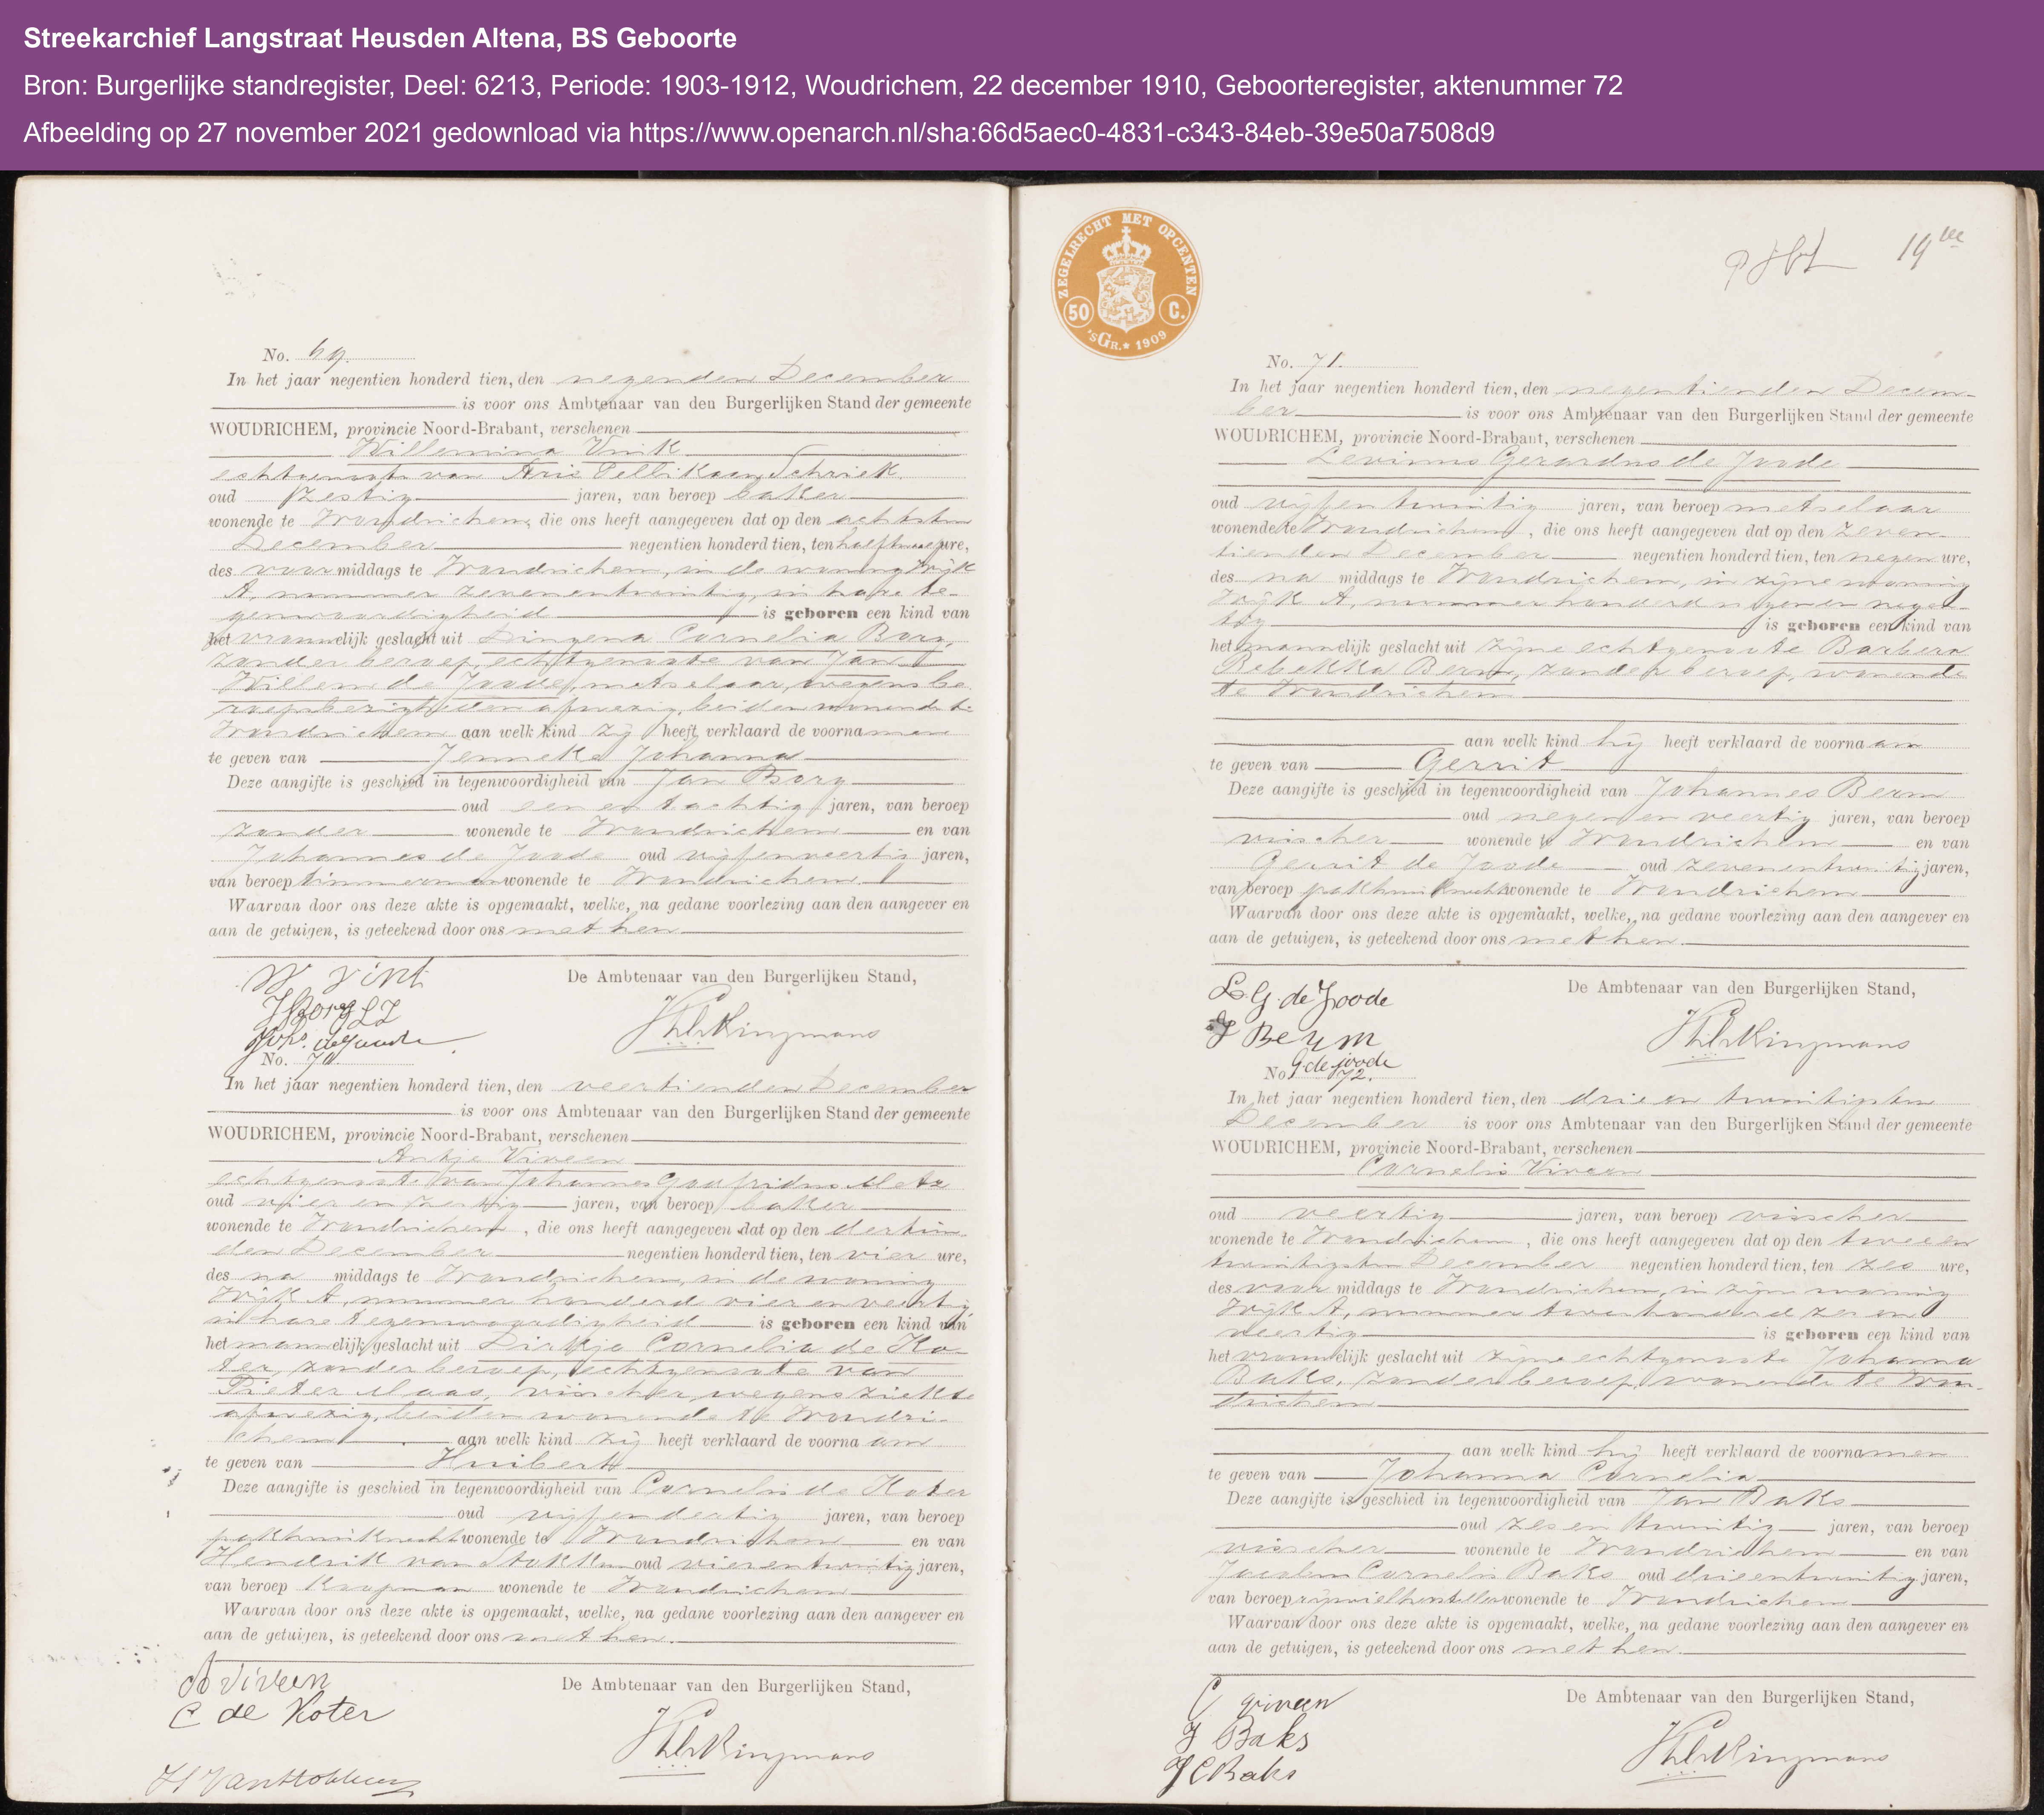 Streekarchief Langstraat Heusden Altena, BS Geboorte
Bron: Burgerlijke standregister, Deel: 6213, Periode: 1903-1912, Woudrichem, 22 december 1910, Geboorteregister, aktenummer 72
Afbeelding op 27 november 2021 gedownload via https://www.openarch.nl/sha:66d5aec0-4831-c343-84eb-39e50a7508d9
No. 69.
In het jaar negentien honderd tien, den negenden December
is voor ons Ambtenaar van den Burgerlijken Stand der gemeente
WOUDRICHEM, provincie Noord-Brabant, verschenen
Willemina Vink
echtgenoote van Arie Pellikaan Schriek
oud zestig jaren, van beroep baker
wonende te Woudrichem, die ons heeft aangegeven dat op den achtsten
December negentien honderd tien, ten half twaalf ure,
des voormiddags te Woudrichem, in de woning Wijk
A, nummer zevenentwintig, in hare te-
genwoordigheid is geboren een kind van
het vrouwelijk geslacht uit Dingena Cornelia Borg,
zonder beroep, echtgenoote van Jan
Willem de Joode, metselaar, wegens be-
roepsbezigheden afwezig, beiden wonende te
Woudrichem aan welk kind zij heeft verklaard de voornamen
te geven van Jenneke Johanna
Deze aangifte is geschied in tegenwoordigheid van Jan Borg
oud een en tachtig jaren, van beroep
zonder wonende te Woudrichem en van
Johannes de Joode oud vijfenveertig jaren,
van beroep timmerman wonende te Woudrichem
Waarvan door ons deze akte is opgemaakt, welke, na gedane voorlezing aan den aangever en
aan de getuigen, is geteekend door ons met hen
De Ambtenaar van den Burgerlijken Stand,
W. Vink
J Borg
Johs. de Joode
No. 70.
In het jaar negentien honderd tien, den veertienden December
is voor ons Ambtenaar van den Burgerlijken Stand der gemeente
WOUDRICHEM, provincie Noord-Brabant, verschenen
Antje Viveen
echtgenoote van Johannes Metz
oud vier en zestig jaren, van beroep baker
wonende te Woudrichem, die ons heeft aangegeven dat op den dertien-
den December negentien honderd tien, ten vier ure,
des na middags te Woudrichem, in de woning
Wijk A, nummer honderd vier en veertig,
in hare tegenwoordigheid is geboren een kind van
het mannelijk geslacht uit Dirkje Cornelia de Ko-
ter, zonder beroep, echtgenoote van
Pieter Maas, visscher, wegens ziekte
afwezig, beiden wonende te Woudri-
chem aan welk kind zij heeft verklaard de voornaam
te geven van Huibert
Deze aangifte is geschied in tegenwoordigheid van Cornelis de Koter
oud vijfendertig jaren, van beroep
pakhuisknecht wonende te Woudrichem en van
Hendrik van Stokkum oud vierentwintig jaren,
van beroep Koopman wonende te Woudrichem
Waarvan door ons deze akte is opgemaakt, welke, na gedane voorlezing aan den aangever en
aan de getuigen, is geteekend door ons met hen.
De Ambtenaar van den Burgerlijken Stand,
A Viveen
C de Koter
H van Stokkum
ZEGELRECHT MET OPCENTEN
50 C.
'sGR.* 1909
19de
No. 71.
In het jaar negentien honderd tien, den negentienden Decem-
ber is voor ons Ambtenaar van den Burgerlijken Stand der gemeente
WOUDRICHEM, provincie Noord-Brabant, verschenen
Levinus Gerardus de Joode
oud vijfentwintig jaren, van beroep metselaar
wonende te Woudrichem, die ons heeft aangegeven dat op den zeven-
tienden December negentien honderd tien, ten negen ure,
des na middags te Woudrichem, in zijne woning
Wijk A, nummer honderd negen en negen-
tig is geboren een kind van
het mannelijk geslacht uit zijne echtgenoote Barbera
Rebekka Berm, zonder beroep, wonende
te Woudrichem
aan welk kind hij heeft verklaard de voornaam
te geven van Gerrit
Deze aangifte is geschied in tegenwoordigheid van Johannes Berm
oud negen en veertig jaren, van beroep
visscher wonende te Woudrichem en van
Gerrit de Joode oud zevenentwintig jaren,
van beroep pakhuisknecht wonende te Woudrichem
Waarvan door ons deze akte is opgemaakt, welke, na gedane voorlezing aan den aangever en
aan de getuigen, is geteekend door ons met hen.
De Ambtenaar van den Burgerlijken Stand,
L. G. de Joode
J Berm
G de joode
No 72.
In het jaar negentien honderd tien, den drie en twintigsten
December is voor ons Ambtenaar van den Burgerlijken Stand der gemeente
WOUDRICHEM, provincie Noord-Brabant, verschenen
Cornelis Viveen
oud veertig jaren, van beroep visscher
wonende te Woudrichem, die ons heeft aangegeven dat op den twee en
twintigsten December negentien honderd tien, ten zes ure,
des voor middags te Woudrichem, in zijne woning
Wijk A, nummer tweehonderd zes en
veertig is geboren een kind van
het vrouwelijk geslacht uit zijne echtgenoote Johanna
Baks, zonder beroep, wonende te Wou-
drichem
aan welk kind hij heeft verklaard de voornamen
te geven van Johanna Cornelia
Deze aangifte is geschied in tegenwoordigheid van Jan Baks
oud zes en twintig jaren, van beroep
visscher wonende te Woudrichem en van
Cornelis Baks oud drieentwintig jaren,
van beroep rijwielhersteller wonende te Woudrichem
Waarvan door ons deze akte is opgemaakt, welke, na gedane voorlezing aan den aangever en
aan de getuigen, is geteekend door ons met hen.
De Ambtenaar van den Burgerlijken Stand,
C Viveen
J Baks
J C Baks